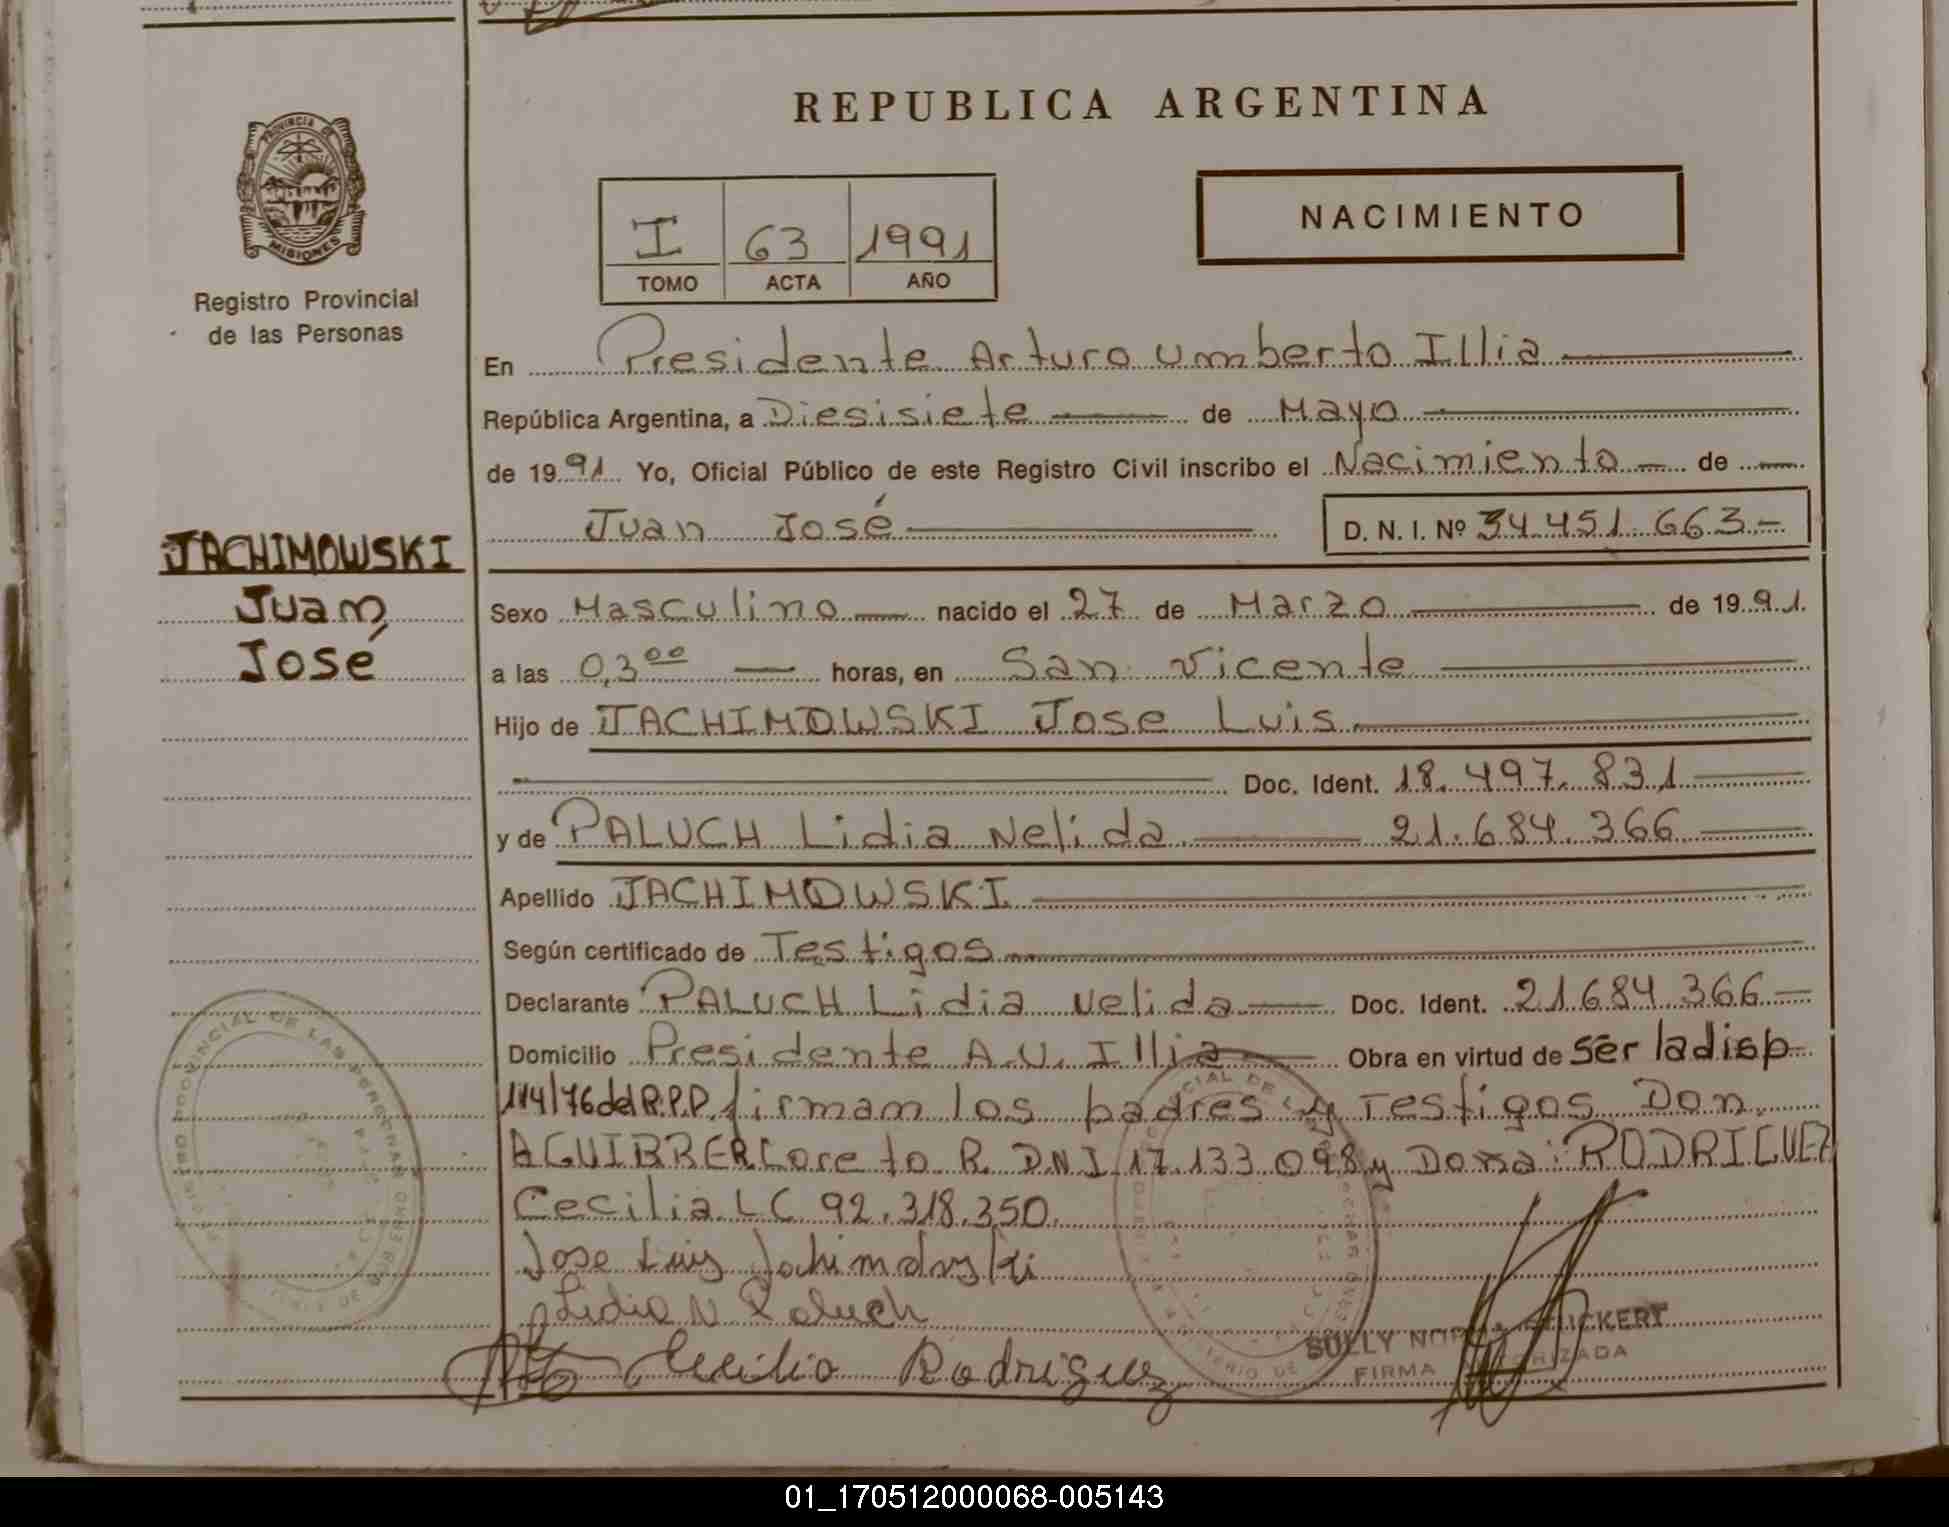 REPUBLICA ARGENTINA
PROVINCIA DE
MISIONES
Registro Provincial
de las Personas
I 63 1991
TOMO ACTA AÑO
NACIMIENTO
En Presidente Arturo Umberto Illia
República Argentina, a Diesisiete de Mayo
de 1991 Yo, Oficial Público de este Registro Civil inscribo el Nacimiento de
Juan José D. N. I. Nº 34.451.663
JACHIMOWSKI
Juan
José
Sexo Masculino nacido el 27 de Marzo de 1991.
a las 03 00 horas, en San Vicente
Hijo de JACHIMOWSKI Jose Luis
Doc. Ident. 18.497.831
y de PALUCH Lidia Nelida 21.684.366
Apellido JACHIMOWSKI
Según certificado de Testigos
Declarante PALUCH Lidia Nelida Doc. Ident. 21.684.366
Domicilio Presidente A.U. Illia Obra en virtud de ser la disp
114/76 del R.P.P. firman los padres y Testigos Don
Loreto R. D.N.I 17.133.098 y Doña: RODRIGUEZ
Cecilia LC 92.318.350
Jose Luis Jachimowski
Lidia N Paluch
Cecilia Rodriguez
SULLY
FIRMA AUTORIZADA
01_170512000068-005143